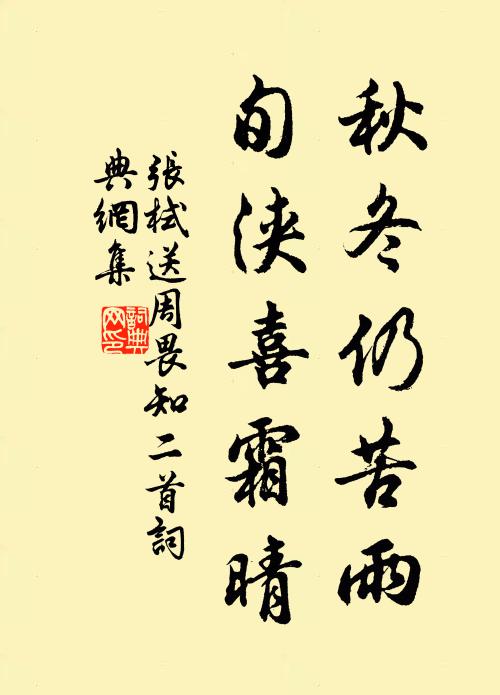 秋冬仍苦雨
旬浹喜霜晴
張栻送周畏知二首詞
典網集
詞典
网印